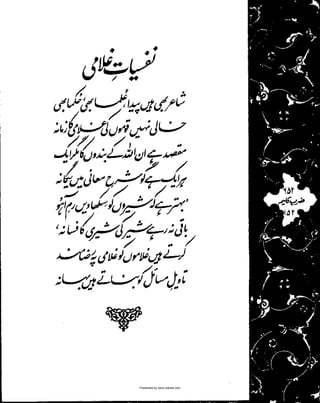 نفسیاتِ غلامی
شاعر بھی ہیں پیدا، علما بھی، حکما بھی
خالی نہیں قوموں کی غلامی کا زمانہ
مقصد ہے ان اللہ کے بندوں کا مگر ایک
ہر ایک ہے گو شرحِ معانی میں یگانہ
'بہتر ہے کہ شیروں کو سکھا دیں رمِ آہو
باقی نہ رہے شیر کی شیری کا فسانہ'
کرتے ہیں غلاموں کو غلامی پہ رضامند
تاویلِ مسائل کو بناتے ہیں بہانہ
ضربِ کلیم
Presented by www.iqbalist.com